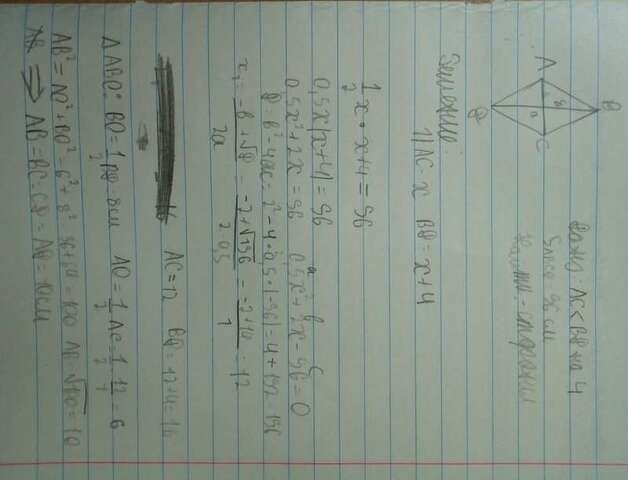 B
A
C
D
8
a
Дано: AC < BD на 4
Sавсд 96 см
Найти: - стороны
Решение:
1) AC - x BD = x + 4
1/2 x • x + 4 = 96
0,5x(x+4) = 96
0,5x² + 2x = 96 0,5x² + 2x - 96 = 0
a b c
D = b² - 4ac = 2² - 4 · 0,5 · (-96) = 4 + 192 = 196
x₁ = -b + √D / 2a = -2 + √196 / 2 · 0,5 = -2 + 14 / 1 = 12
AC = 12 BD = 12 + 4 = 16
△ABO: BO = 1/2 BD = 8 см AO = 1/2 AC = 1/2 · 12/1 = 6
AB² = AO² + BO² = 6² + 8² 36 + 64 = 100 AB = √100 = 10
AB ⇒ AB = BC = CD = AD = 10 см